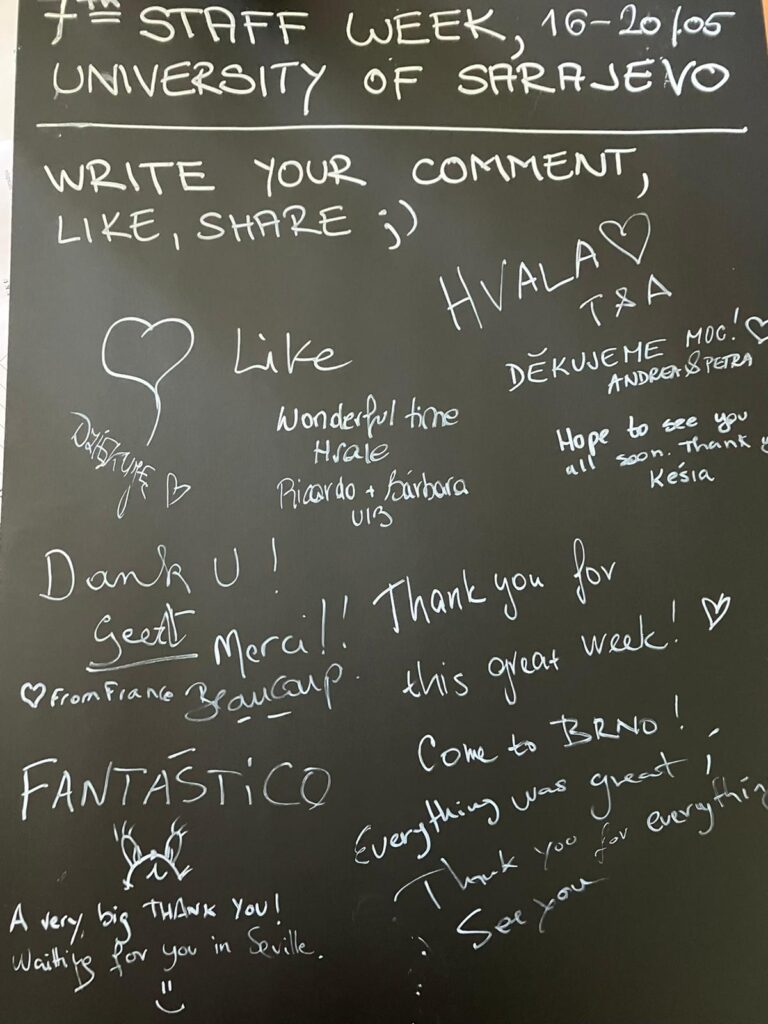 7TH STAFF WEEK, 16-20/05
UNIVERSITY OF SARAJEVO
WRITE YOUR COMMENT,
LIKE, SHARE ;)
HVALA
T & A
Like
DĚKUJEME MOC!
ANDREA & PETRA
DZIĘKUJĘ
Wonderful time
Hvale
Ricardo + Bárbara
UIB
Hope to see you
all soon. Thank y
Késia
Dank U!
Geert
Merci!!
Beaucoup.
From France
Thank you for
this great week!
Come to BRNO!
FANTÁSTICO
Everything was great!
Thank you for everythin
See you
A very, big THANK YOU!
Waitting for you in Seville.